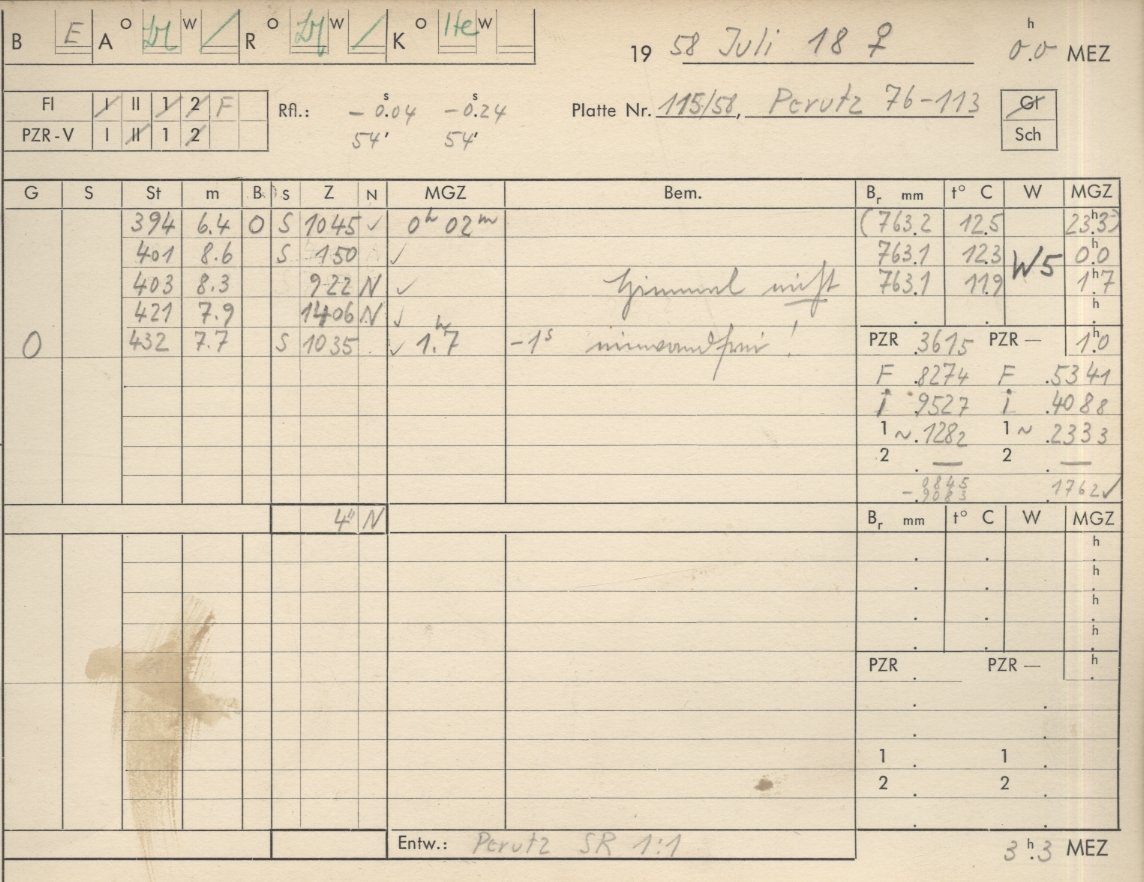 B E A O W R O W K O Ite W
19 58 Juli 18 ♀ 0.0 h MEZ
Fl I II 1 2 F Rfl.: -0.04 s -0.24 s Platte Nr. 115/58, Perutz 76-113 Gl
PZR-V I II 1 2 54' 54' Sch
G S St m B S Z N MGZ Bem. Br mm t° C W MGZ
394 6.4 O S 1045 ✓ 0h 02m (763.2 12.5 23.h3)
401 8.6 S 150 ✓ 763.1 12.3 W5 0.h0
403 8.3 922 N ✓ Himmel nicht 763.1 11.9 1.h7
421 7.9 1406 N ✓ . . . h
O 432 7.7 S 1035 ✓ 1.h7 -1s einwandfrei! PZR .3615 PZR — 1.h0
F .8274 F .5341
i .9527 i .4088
1 ~.1282 1 ~.2333
2 . — 2 . —
.0845
-.9083 1762✓
4" N Br mm t° C W MGZ
h
h
h
h
PZR . PZR — h
1 . 1 .
2 . 2 .
Entw.: Perutz SR 1:1 3.h3 MEZ